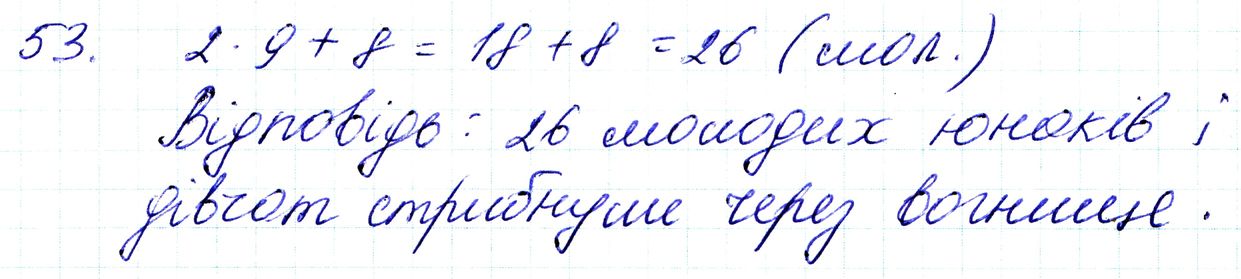 53. 2 · 9 + 8 = 18 + 8 = 26 (мол.)
Відповідь: 26 молодих юнаків і
дівчат стрибнули через вогнище.